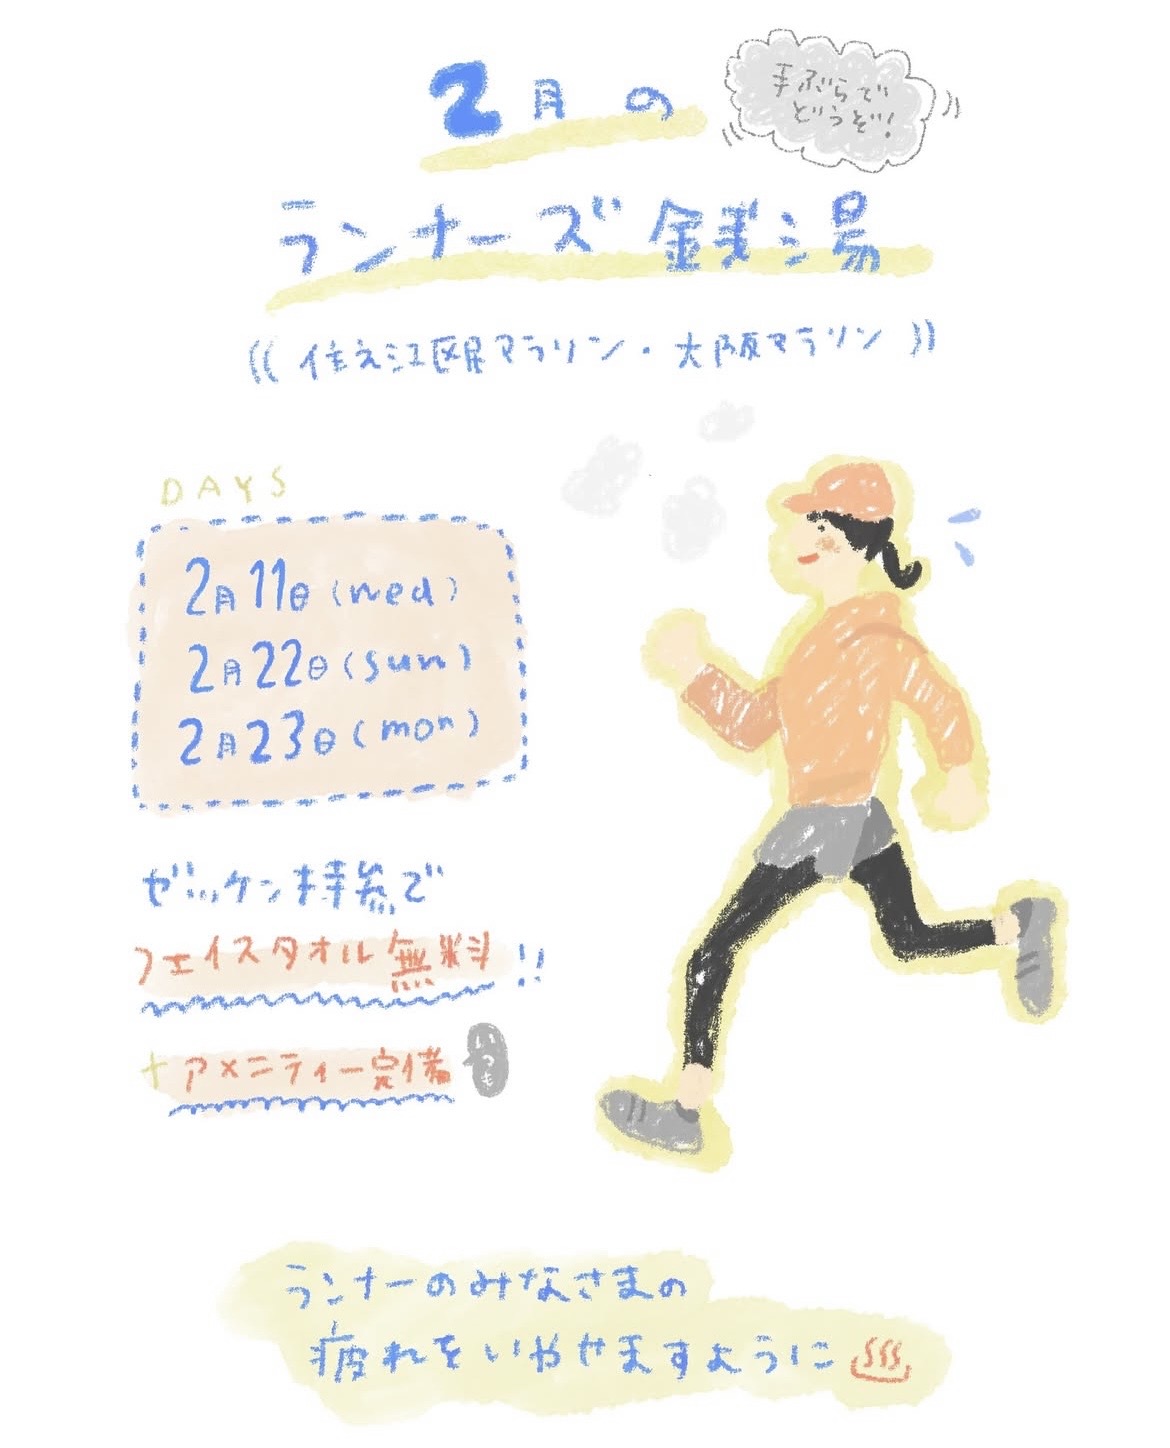 2月の
手ぶらで
どうぞ!
ランナーズ銭湯
(( 住之江区民マラソン・大阪マラソン ))
DAYS
2月11日(wed)
2月22日(sun)
2月23日(mon)
ゼッケン持参で
フェイスタオル無料!!
+アメニティー完備
いつも
ランナーのみなさまの
疲れをいやせますように♨